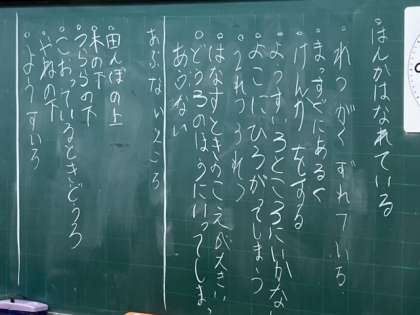 ・ほんかはなれている
・れつがくずれている
・まっすぐにあるく
・けんかをする
・よっすいろところにいかな
・よこにひろがってしまう
・うれつうれつ
・はなすときのこえが大きい
・どうろのほうにいってしま
あぶない
あぶないところ
・田んぼの上
・木の下
・つららの下
・こおっているときどうろ
・やねの下
・ようすいろ